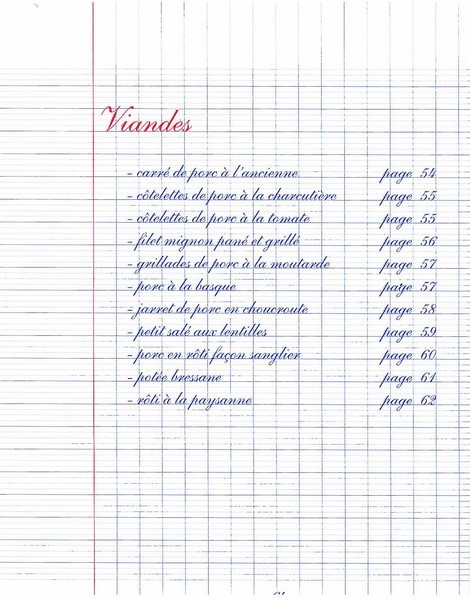 Viandes
- carré de porc à l'ancienne page 54
- côtelettes de porc à la charcutière page 55
- côtelettes de porc à la tomate page 55
- filet mignon pané et grillé page 56
- grillades de porc à la moutarde page 57
- porc à la basque page 57
- jarret de porc en choucroute page 58
- petit salé aux lentilles page 59
- porc en rôti façon sanglier page 60
- potée bressane page 61
- rôti à la paysanne page 62